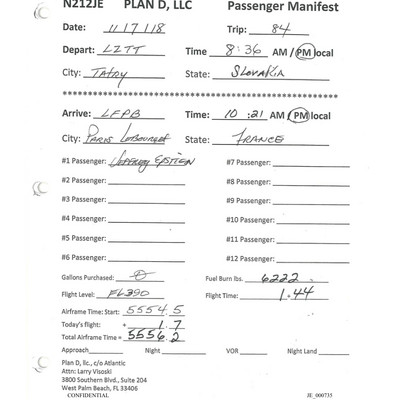 N212JE PLAN D, LLC Passenger Manifest
Date: 11/17/18 Trip: 84
Depart: LZTT Time 8:36 AM / PM local
City: Tatry State: SLOVAKIA
****************************************************************
Arrive: LFPB Time: 10:21 AM / PM local
City: Paris LeBourget State: FRANCE
#1 Passenger: Jeffrey Epstein #7 Passenger:
#2 Passenger: #8 Passenger:
#3 Passenger: #9 Passenger:
#4 Passenger: #10 Passenger:
#5 Passenger: #11 Passenger:
#6 Passenger: #12 Passenger:
Gallons Purchased: 0 Fuel Burn lbs. 6222
Flight Level: FL390 Flight Time: 1.44
Airframe Time: Start: 5554.5
Today's flight: + 1.7
Total Airframe Time = 5556.2
Approach Night VOR Night Land
Plan D, llc, c/o Atlantic
Attn: Larry Visoski
3800 Southern Blvd., Suite 204
West Palm Beach, FL 33406
CONFIDENTIAL JE_000735